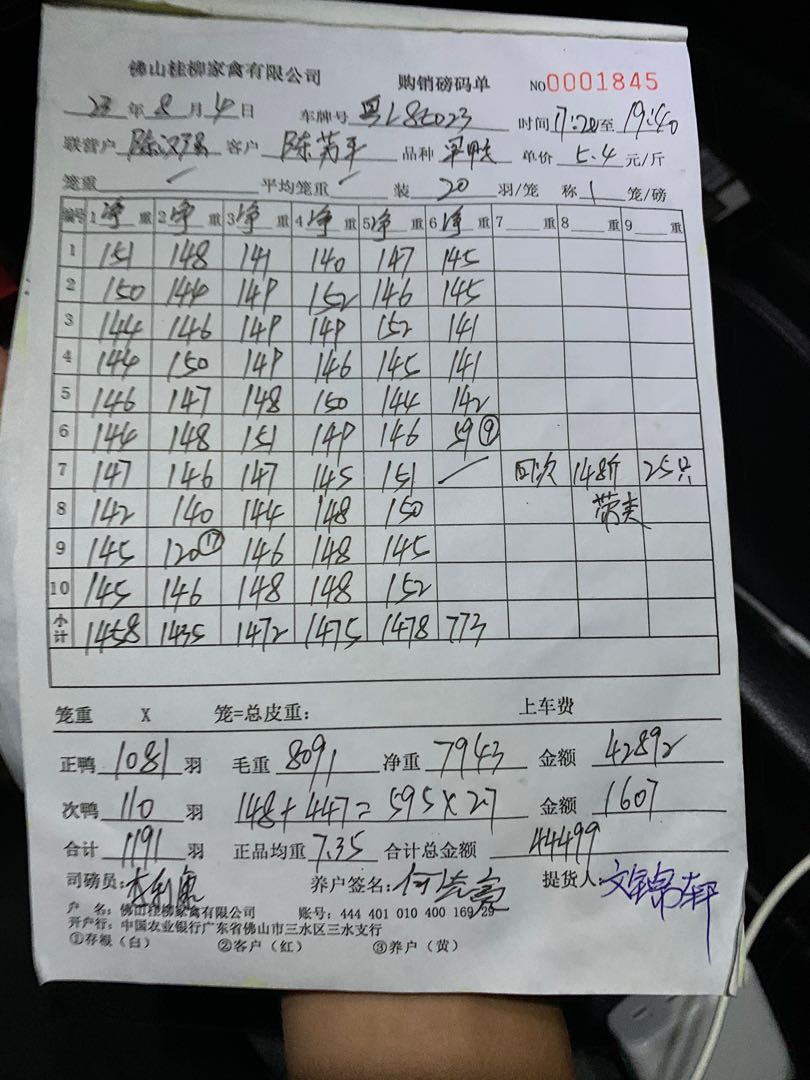 佛山桂柳家禽有限公司 购销磅码单 NO 0001845
23 年 8 月 4 日 车牌号 粤L85023 时间 17:20 至 19:40
联营户 客户 陈芳平 品种 单价 5.4 元/斤
笼重 ✓ 平均笼重 ✓ 装 20 羽/笼 称 1 笼/磅
编号 1 净 重 2 净 重 3 净 重 4 净 重 5 净 重 6 净 重 7 重 8 重 9 重
1 151 148 141 140 147 145
2 150 144 149 152 146 145
3 144 146 149 149 152 141
4 144 150 149 146 145 141
5 146 147 148 150 144 142
6 144 148 151 149 146 59 ⑨
7 147 146 147 145 151 回次 148斤 25只
8 142 140 144 148 150
9 145 120 ⑰ 146 148 145
10 145 146 148 148 152
小计 1458 1435 1472 1475 1478 773
笼重 X 笼=总皮重: 上车费
正鸭 1081 羽 毛重 8091 净重 7943 金额 42892
次鸭 110 羽 148+447=595×2.7 金额 1607
合计 1191 羽 正品均重 7.35 合计总金额 44499
司磅员: 养户签名: 提货人: 文锦轩
户 名: 佛山桂柳家禽有限公司 账号: 444 401 010 400 169 29
开户行: 中国农业银行广东省佛山市三水区三水支行
①存根(白) ②客户(红) ③养户(黄)